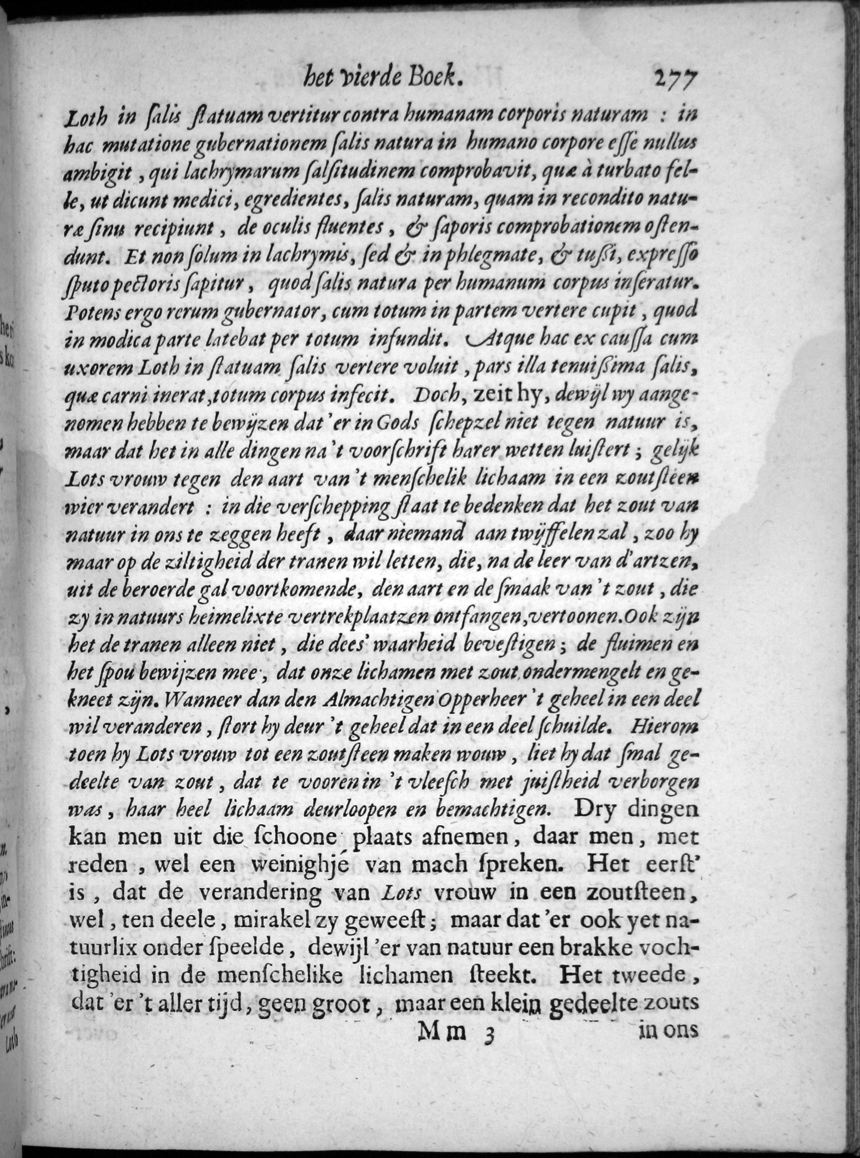 het vierde Boek. 277
Loth in ſalis ſtatuam vertitur contra humanam corporis naturam : in
hac mutatione gubernationem ſalis natura in humano corpore eſſe nullus
ambigit , qui lachrymarum ſalſitudinem comprobavit, quæ à turbato fel-
le, ut dicunt medici, egredientes, ſalis naturam, quam in recondito natu-
ræ ſinu recipiunt , de oculis fluentes , & ſaporis comprobationem oſten-
dunt. Et non ſolum in lachrymis, ſed & in phlegmate, & tuſſi, expreſſo
ſputo pectoris ſapitur , quod ſalis natura per humanum corpus inſeratur.
Potens ergo rerum gubernator, cum totum in partem vertere cupit , quod
in modica parte latebat per totum infundit. Atque hac ex cauſſa cum
uxorem Loth in ſtatuam ſalis vertere voluit , pars illa tenuiſſima ſalis,
quæ carni inerat, totum corpus infecit. Doch, zeit hy, dewijl wy aange-
nomen hebben te bewijzen dat 'er in Gods ſchepzel niet tegen natuur is,
maar dat het in alle dingen na 't voorſchrift harer wetten luiſtert ; gelijk
Lots vrouw tegen den aart van 't menſchelik lichaam in een zoutſteen
wier verandert : in die verſchepping ſtaat te bedenken dat het zout van
natuur in ons te zeggen heeft , daar niemand aan twijffelen zal , zoo hy
maar op de ziltigheid der tranen wil letten, die, na de leer van d'artzen,
uit de beroerde gal voortkomende, den aart en de ſmaak van 't zout , die
zy in natuurs heimelixte vertrekplaatzen ontfangen, vertoonen. Ook zijn
het de tranen alleen niet , die dees' waarheid beveſtigen ; de fluimen en
het ſpou bewijzen mee , dat onze lichamen met zout ondermengelt en ge-
kneet zijn. Wanneer dan den Almachtigen Opperheer 't geheel in een deel
wil veranderen , ſtort hy deur 't geheel dat in een deel ſchuilde. Hierom
toen hy Lots vrouw tot een zoutſteen maken wouw , liet hy dat ſmal ge-
deelte van zout , dat te vooren in 't vleeſch met juiſtheid verborgen
was , haar heel lichaam deurloopen en bemachtigen. Dry dingen
kan men uit die ſchoone plaats afnemen , daar men , met
reden , wel een weinighjé van mach ſpreken. Het eerſt'
is , dat de verandering van Lots vrouw in een zoutſteen ,
wel , ten deele , mirakel zy geweeſt ; maar dat 'er ook yet na-
tuurlix onder ſpeelde , dewijl 'er van natuur een brakke voch-
tigheid in de menſchelike lichamen ſteekt. Het tweede ,
dat 'er 't aller tijd, geen groot , maar een klein gedeelte zouts
M m 3 in ons